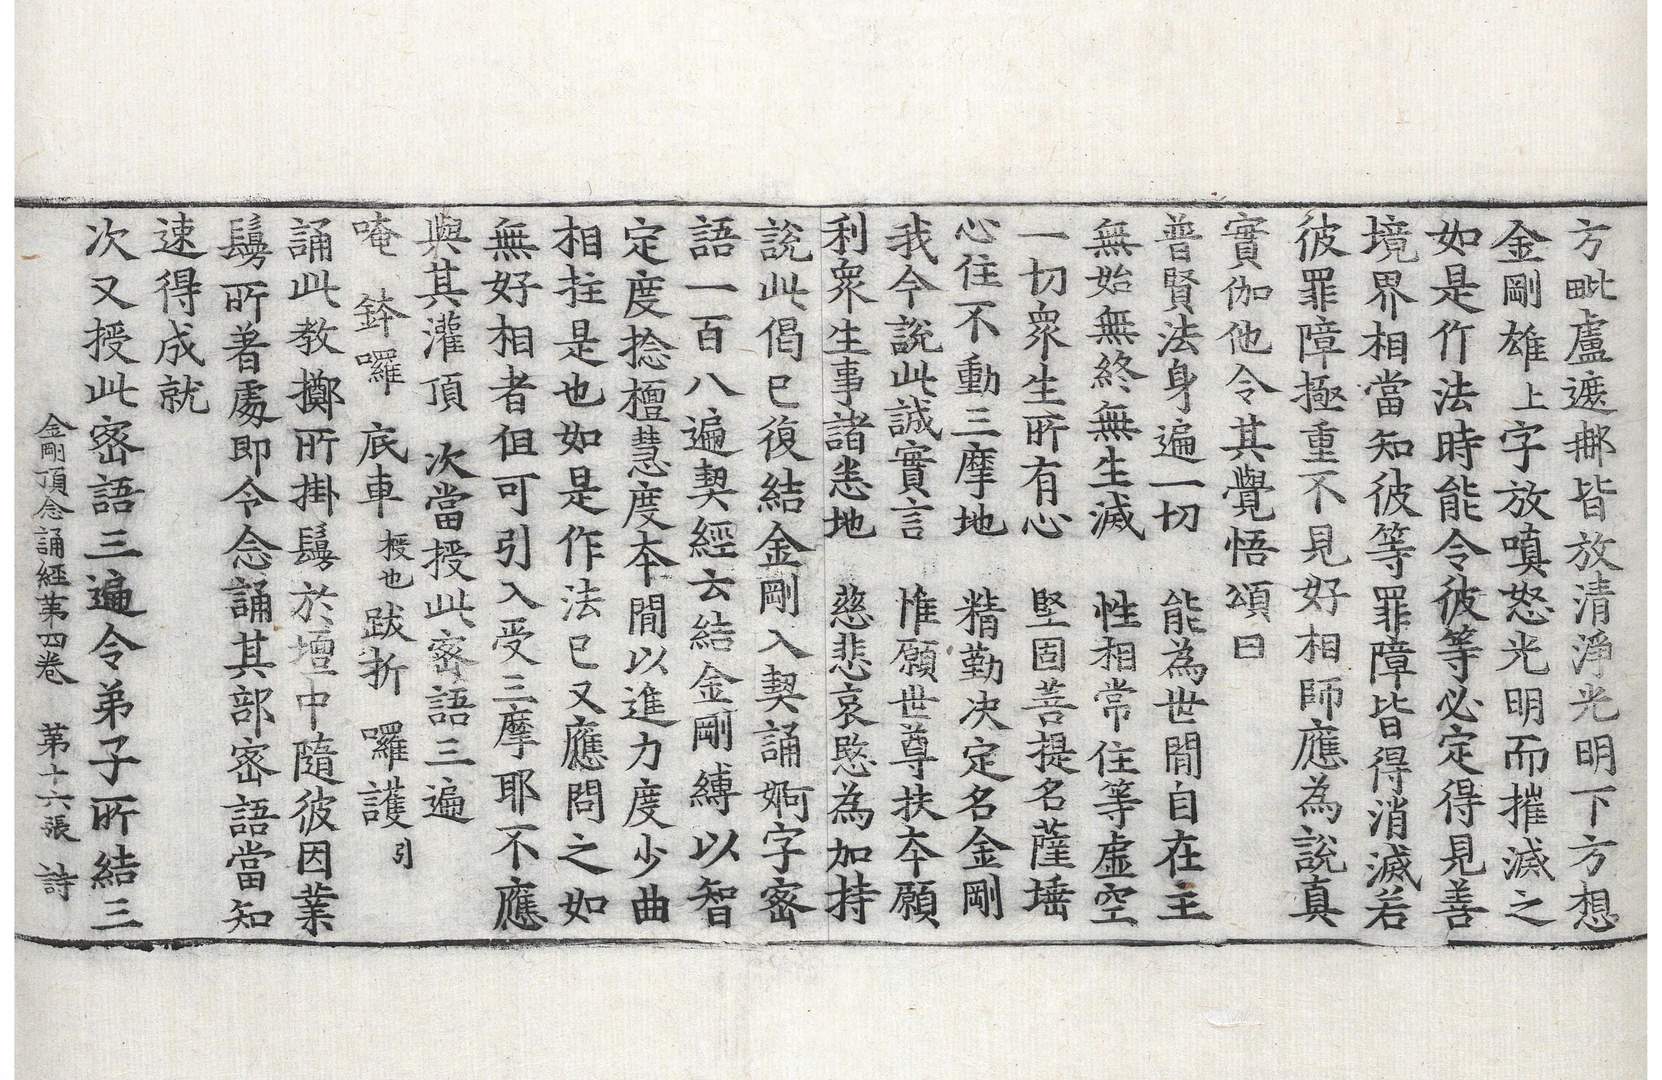 方毗盧遮那皆放清淨光明下方想
金剛雄上字放嗔怒光明而摧滅之
如是作法時能令彼等必定得見善
境界相當知彼等罪障皆得消滅若
彼罪障極重不見好相師應為說真
實伽他令其覺悟頌曰
普賢法身遍一切　能為世間自在主
無始無終無生滅　性相常住等虛空
一切眾生所有心　堅固菩提名薩埵
心住不動三摩地　精勤決定名金剛
我今說此誠實言　惟願世尊扶本願
利眾生事諸悉地　慈悲哀愍為加持
說此偈已復結金剛入契誦婀字密
語一百八遍契經云結金剛縛以智
定度捻檀慧度本間以進力度少曲
相拄是也如是作法已又應問之如
無好相者但可引入受三摩耶不應
與其灌頂　次當授此密語三遍
唵　鉢囉　底車授也跋折　囉護引
誦此教擲所掛鬘於壇中隨彼因業
鬘所著處即令念誦其部密語當知
速得成就
次又授此密語三遍令弟子所結三
金剛頂念誦經第四卷　第十六張　詩